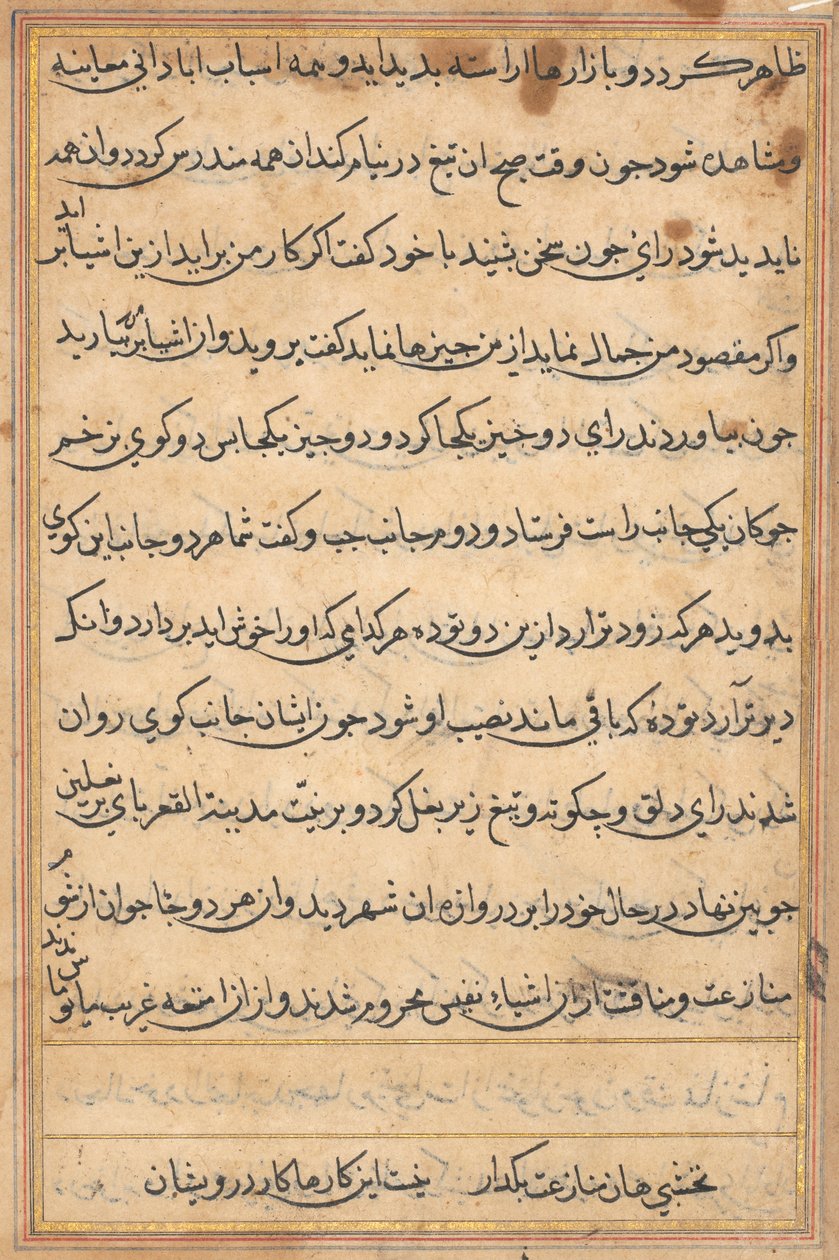 ظاهر كردد و بازارها اراسته بديد ايد و همه اسباب اباداني معاينه
و مشاهده شود جون وقت صبح ان تيغ در نيام كند ان همه مندرس كردد و ان همه
نابديد شود راي جون سخن بشنيد با خود كفت اكر كار من برايد ازين اشيا برايد
و اكر مقصود من جمال نمايد ازين جيزها نمايد كفت برويد و ان اشيا بر من بياريد
جون بياوردند راي دو جيز يكجا كرد و دو جيز يكجا بس دو كوي بزخم
جوكان يكي جانب راست فرستاد و دوم جانب جب و كفت شما هر دو جانب اين كوي
بدويد هركه زودتر ارد ازين دو توده هر كدامي كه اورا خوش ايد بردارد و انكه
ديرتر آرد تودهٔ كه باقي ماند نصيب او شود جون ايشان جانب كوي روان
شدند راي دلق و چكوته و تيغ زير بغل كرد و بر نيّت مدينة القعر باي بر نعلين
جوبين نهاد در حال خود را بر دروازه ان شهر ديد و ان هر دو جوان از شوم
منازعت و مناقشت ازان اشياءِ نفيس محروم شدند و ازان امتعه غريب مايوس ماندند
نخشبي هان منازعت بكذار نيت اين كارها كار درويشان